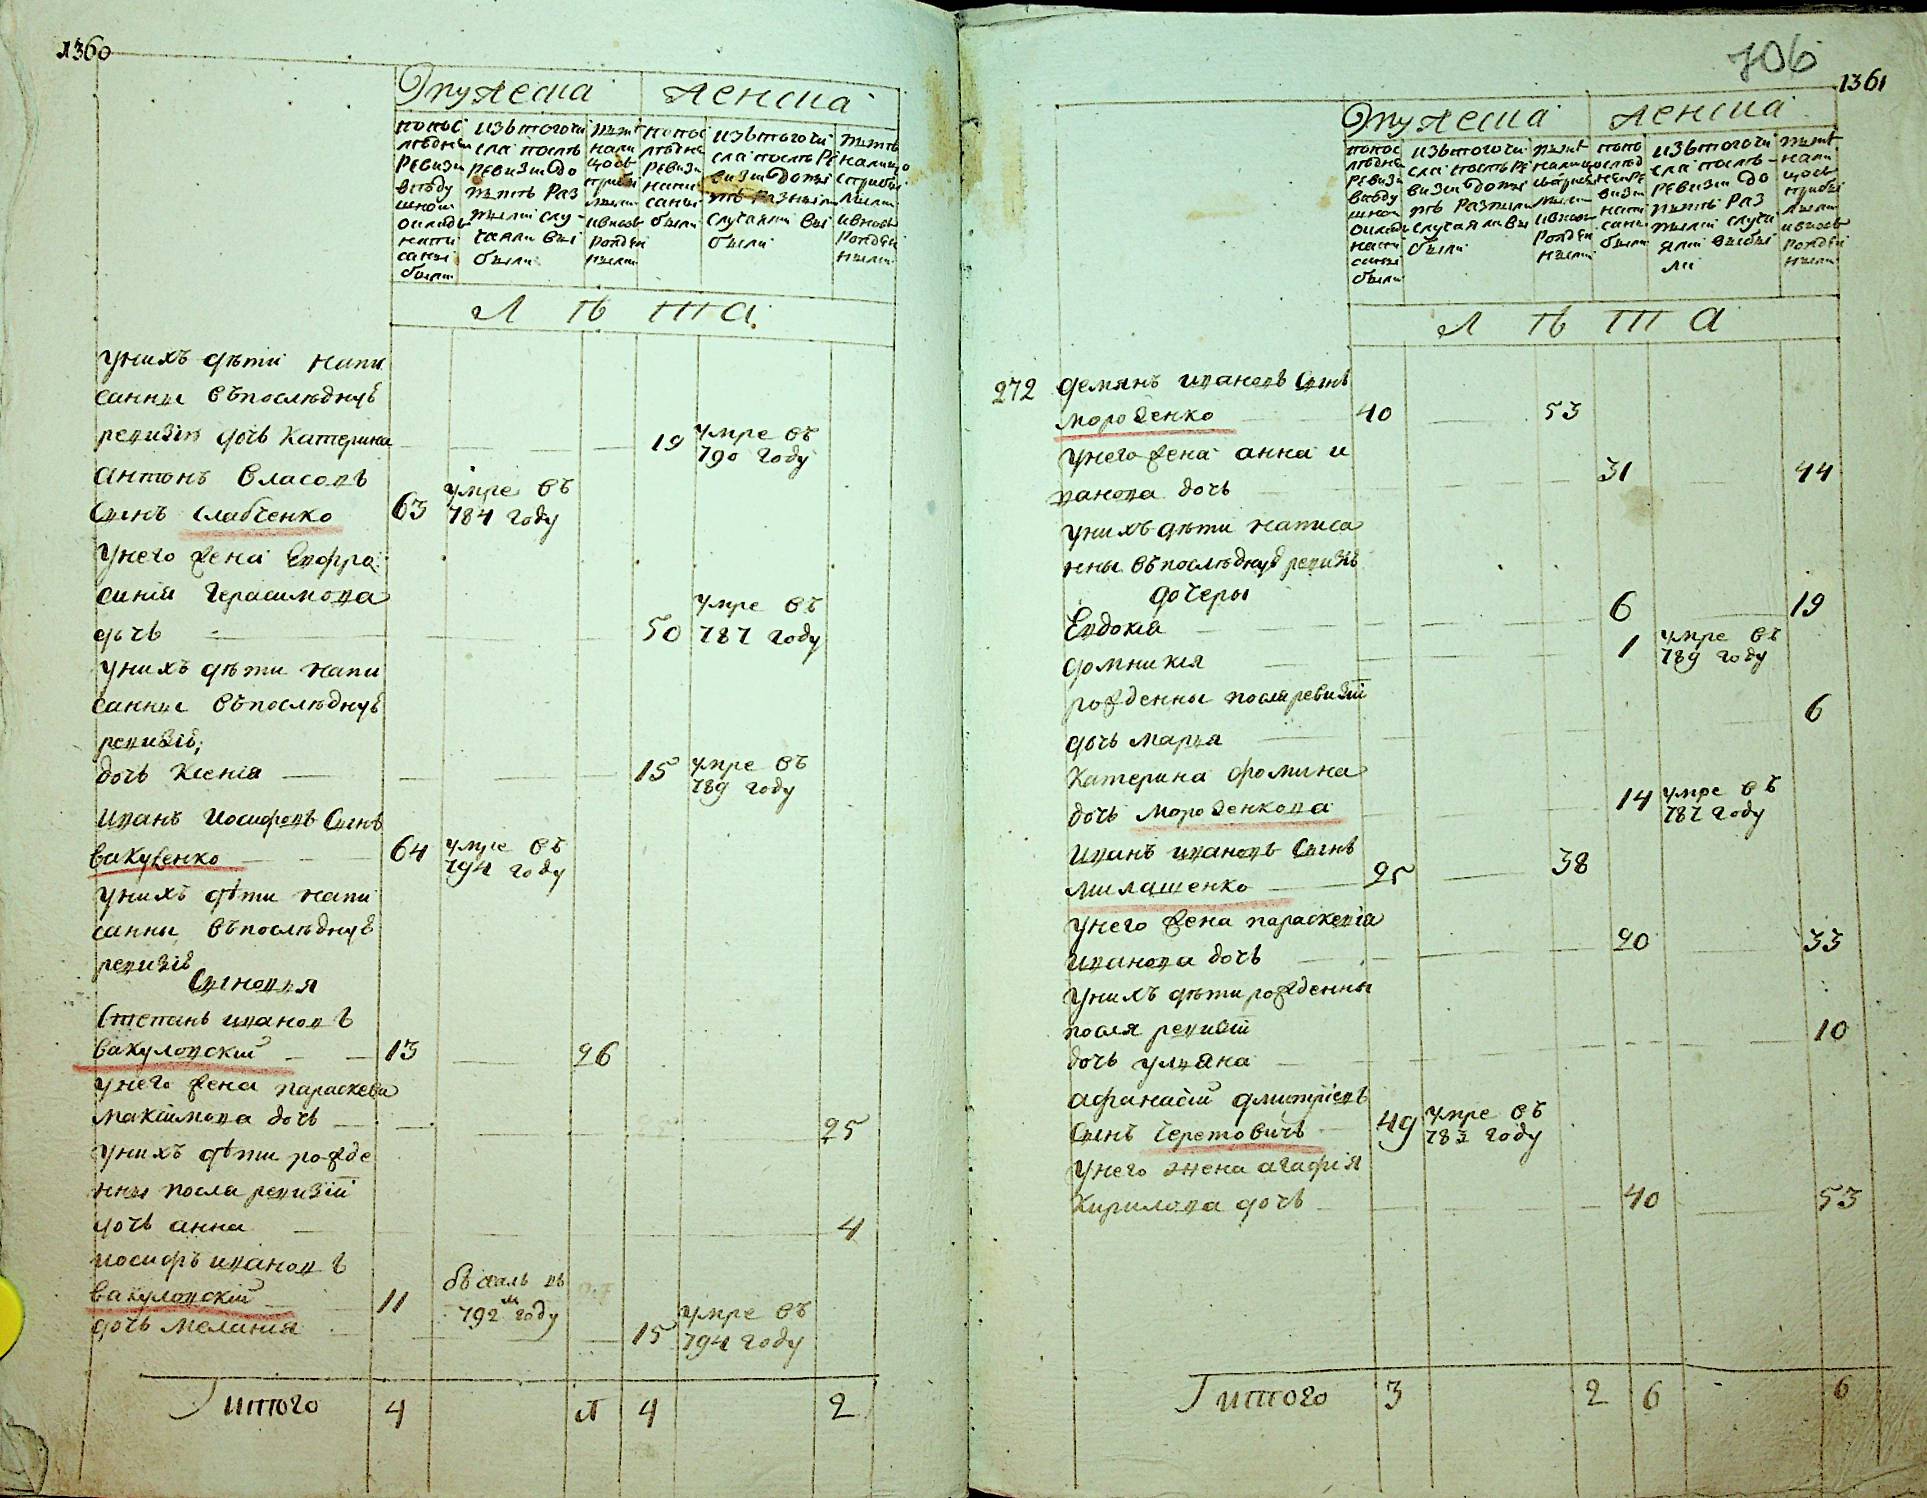 1360
Мужеска Женска
попос
лѣдней
ревизи
въ оду
шной
окладъ
напи
саны
были
изъ того чи
сла послѣ
ревизии до
нынѣ раз
ными слу
чаями вы
были
нынѣ
нали
цось
прибы
лыми
ивновь
рожден
ными
попос
лѣдне
ревизи
напи
саны
были
изъ того чи
сла послѣ ре
визии до ны
нѣ разными
случаями вы
были
нынѣ
налицо
с прибы
лыми
ивновь
рожден
ными
Л Ѣ Т А
унихъ дѣти напи
санные въ последнуѣ
ревизію дочь Катерина 19 умре въ
790 году
Антонъ Власовъ
Сынъ Слабченко 63 умре въ
784 году
унего жена Евфро
синия Герасимова
дочь 50 умре въ
787 году
унихъ дѣти напи
санные въ последнуѣ
ревизіѣ,
дочь Ксения 15 умре въ
789 году
Иванъ Иосифовъ Сынъ
вакуленко 64 умре въ
794 году
унихъ дѣти напи
санны въ последнуѣ
ревизіѣ
Сыновья
Степанъ ивановъ
вакуловский 13 26
унего жена параскева
максимова дочь 25
унихъ дѣти рожде
нны посля ревизій
дочь анна 4
иосифъ ивановъ
вакуловский 11 бѣжалъ въ
792м году
дочь мелания 15 умре въ
794 году
итого 4 1 4 2
106
1361
Мужеска женска
попос
лѣдне
ревизи
въ оду
шной
окладъ
напи
саны
были
изъ того чи
сла послѣ ре
визии до ны
нѣ разными
случаями вы
были
нынѣ
налицо
сприбы
лыми
ивновь
рожден
ными
попо
слѣд
ней ре
визи
напи
саны
были
изъ того чи
сла послѣ
ревизии до
нынѣ раз
ными случа
ями выбы
ли
нынѣ
нали
цось
прибы
лыми
ивновь
рожден
ными
Л Ѣ Т А
272 демянъ ивановъ Сынъ
морозенко 40 53
унего жена анна и
ванова дочь 31 44
унихъ дѣти написа
нны въ последнуѣ ревизіѣ
дочеры
Евдокія 6 19
домникія 1 умре въ
789 году
рожденны посля ревизій
дочь марья 6
Катерина фомина
дочь морозенкова 14 умре въ
787 году
Иванъ ивановъ Сынъ
милашенко 25 38
унего жена параскевія
иванова дочь 20 33
унихъ дѣти рожденны
посля ревизій
дочь ульяна 10
афанасій дмитріевъ
Сынъ Черетовичъ 49 умре въ
783 году
унего жена агафія
Кирилова дочь 40 53
итого 3 2 6 6